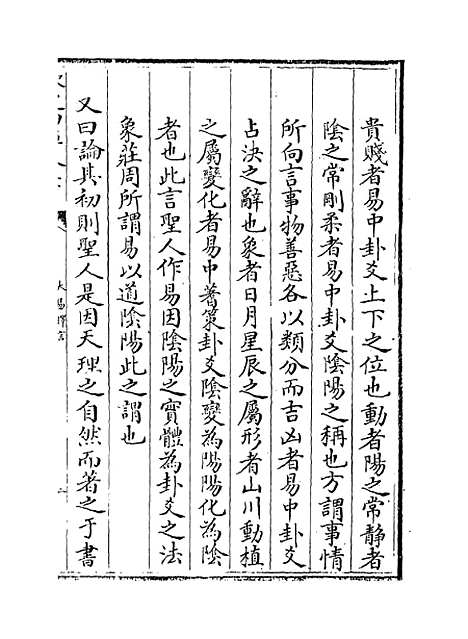 貴賤者易中卦爻上下之位也動者陽之常静者
陰之常剛柔者易中卦爻陰陽之稱也方謂事情
所向言事物善惡各以類分而吉凶者易中卦爻
占決之辭也象者日月星辰之屬形者山川動植
之屬變化者易中蓍策卦爻陰變為陽陽化為陰
者也此言聖人作易因陰陽之實體為卦爻之法
象莊周所謂易以道陰陽此之謂也
又曰論其初則聖人是因天理之自然而著之于書
大易擇言